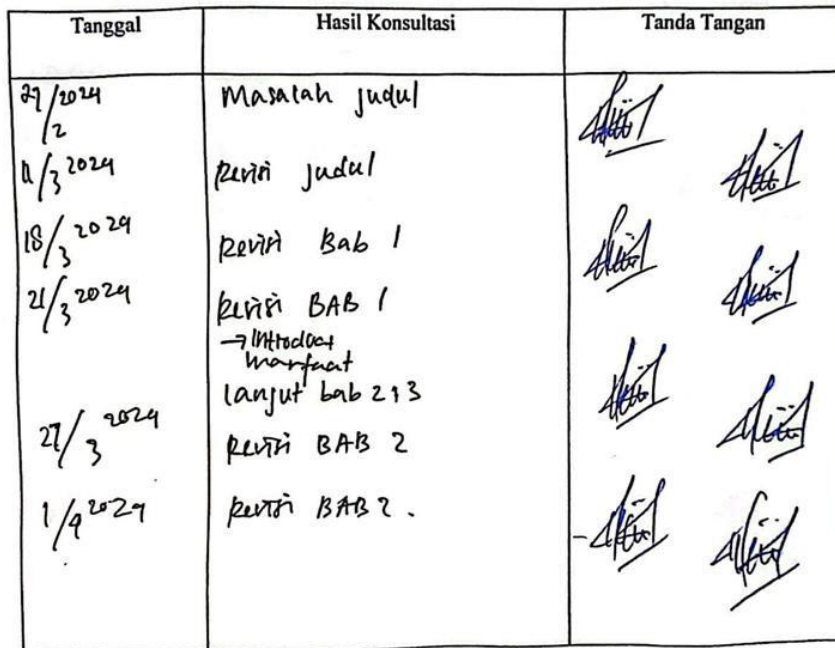 Tanggal Hasil Konsultasi Tanda Tangan
27/2 2024 Masalah judul
11/3 2024 Revisi judul
18/3 2024 Revisi Bab 1
21/3 2024 Revisi BAB 1
→
manfaat
lanjut bab 2 & 3
27/3 2024 Revisi BAB 2
1/4 2024 Revisi BAB 2.